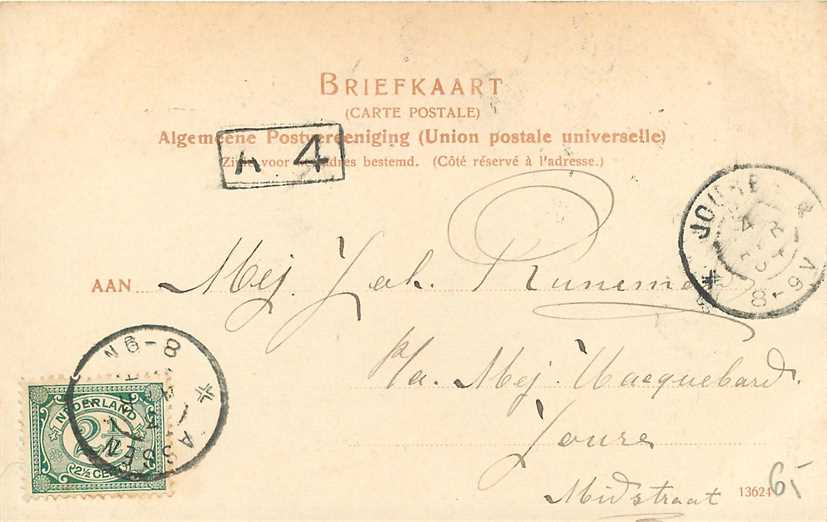 BRIEFKAART
(CARTE POSTALE)
Algemeene Postvereeniging (Union postale universelle)
Zijde voor het adres bestemd. (Côté réservé à l'adresse.)
A 4
JOURE
8-9V
AAN Mej. Joh. Runema
p/a. Mej. Hacquebard.
Joure
Midstraat
ASSEN
6-8N
NEDERLAND
2½
2½ CENT
13624
6,-